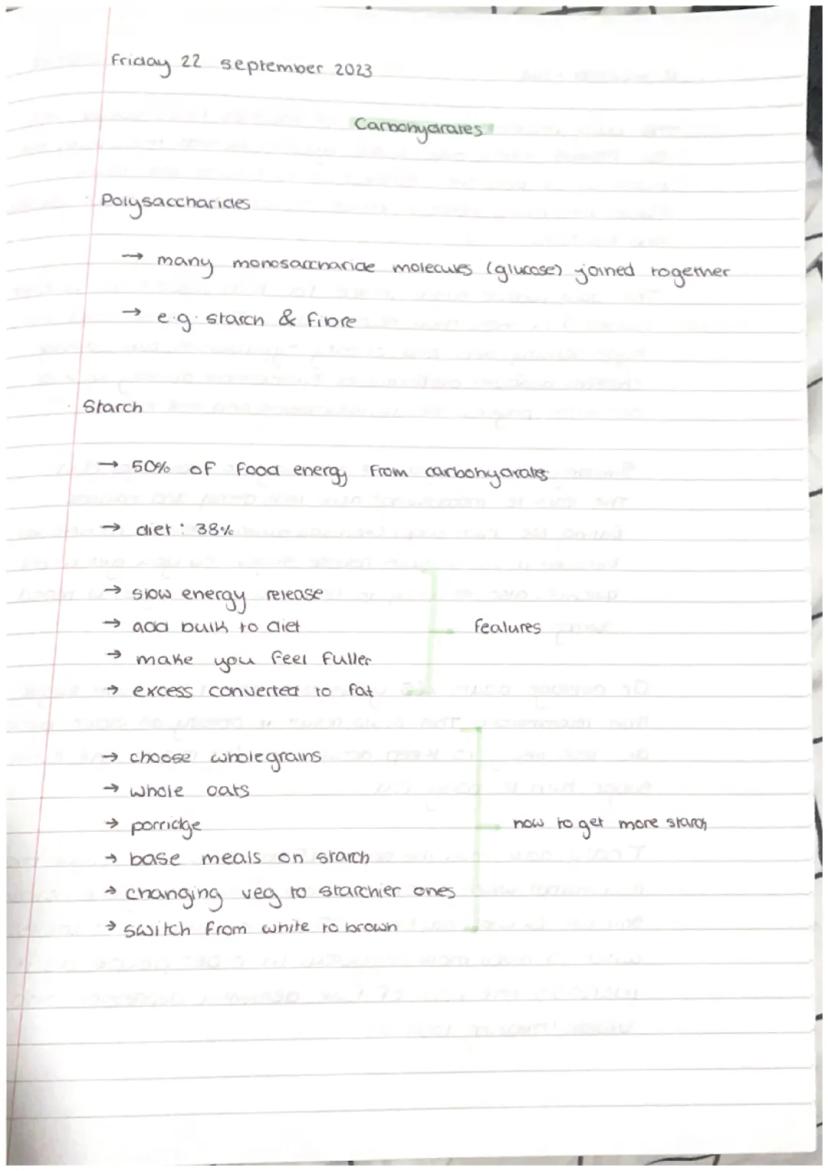 Friday 22 september 2023
Carbohydrates
Polysaccharides
→ many monosaccharide molecules (glucose) joined together
→ e.g. starch & fibre
Starch
→ 50% of food energy from carbohydrates
→ diet : 38%
→ slow energy release
→ add bulk to diet
features
→ make you feel fuller
→ excess converted to fat
→ choose wholegrains
→ whole oats
→ porridge
how to get more starch
→ base meals on starch
→ changing veg to starchier ones
→ switch from white to brown